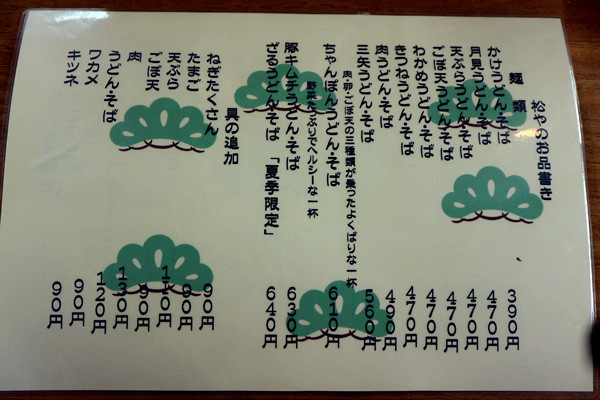 松やのお品書き
麺類
かけうどん・そば 390円
月見うどん・そば 470円
天ぷらうどん・そば 470円
ごぼ天うどん・そば 470円
わかめうどん・そば 470円
きつねうどん・そば 470円
肉うどん・そば 490円
三矢うどん・そば 560円
肉・卵・ごぼ天の三種類が乗ったよくばりな一杯
ちゃんぽんうどん・そば 610円
野菜たっぷりでヘルシーな一杯
豚キムチうどん・そば 630円
ざるうどん・そば「夏季限定」 640円
具の追加
ねぎたくさん 90円
たまご 90円
天ぷら 110円
ごぼ天 90円
肉 130円
うどん・そば 120円
ワカメ 90円
キツネ 90円